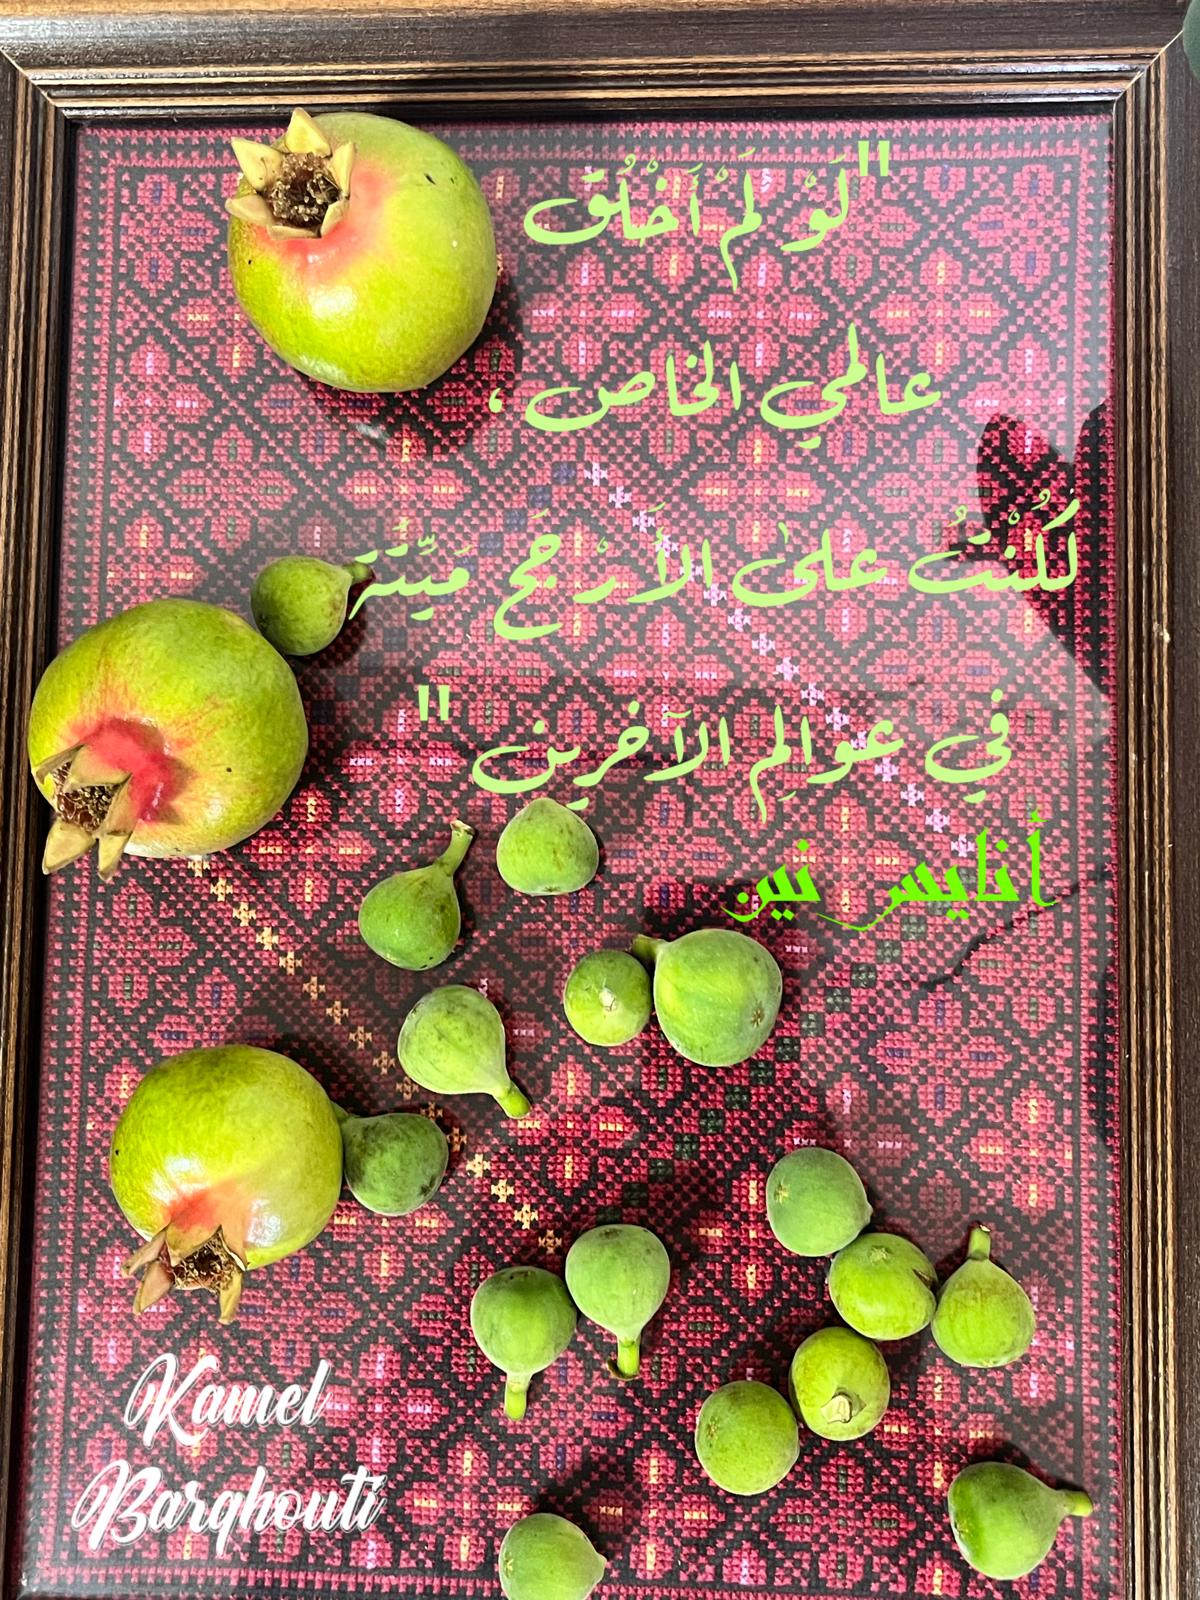 "لَوْ لَمْ أَخْلُق
عالمي الخاص ،
لَكُنْتُ على الأَرْجَح مَيِّتَة
في عوالِم الآخرين "
أنايس نين
Kamel
Barghouti